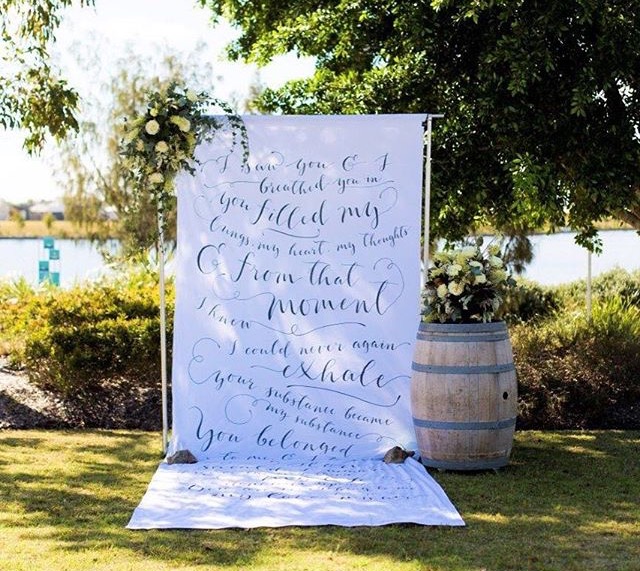 I saw you & I
breathed you in
you filled my
lungs, my heart, my thoughts
& from that
moment
I knew
I could never again
exhale
your substance became
my substance
You belonged
to me & I